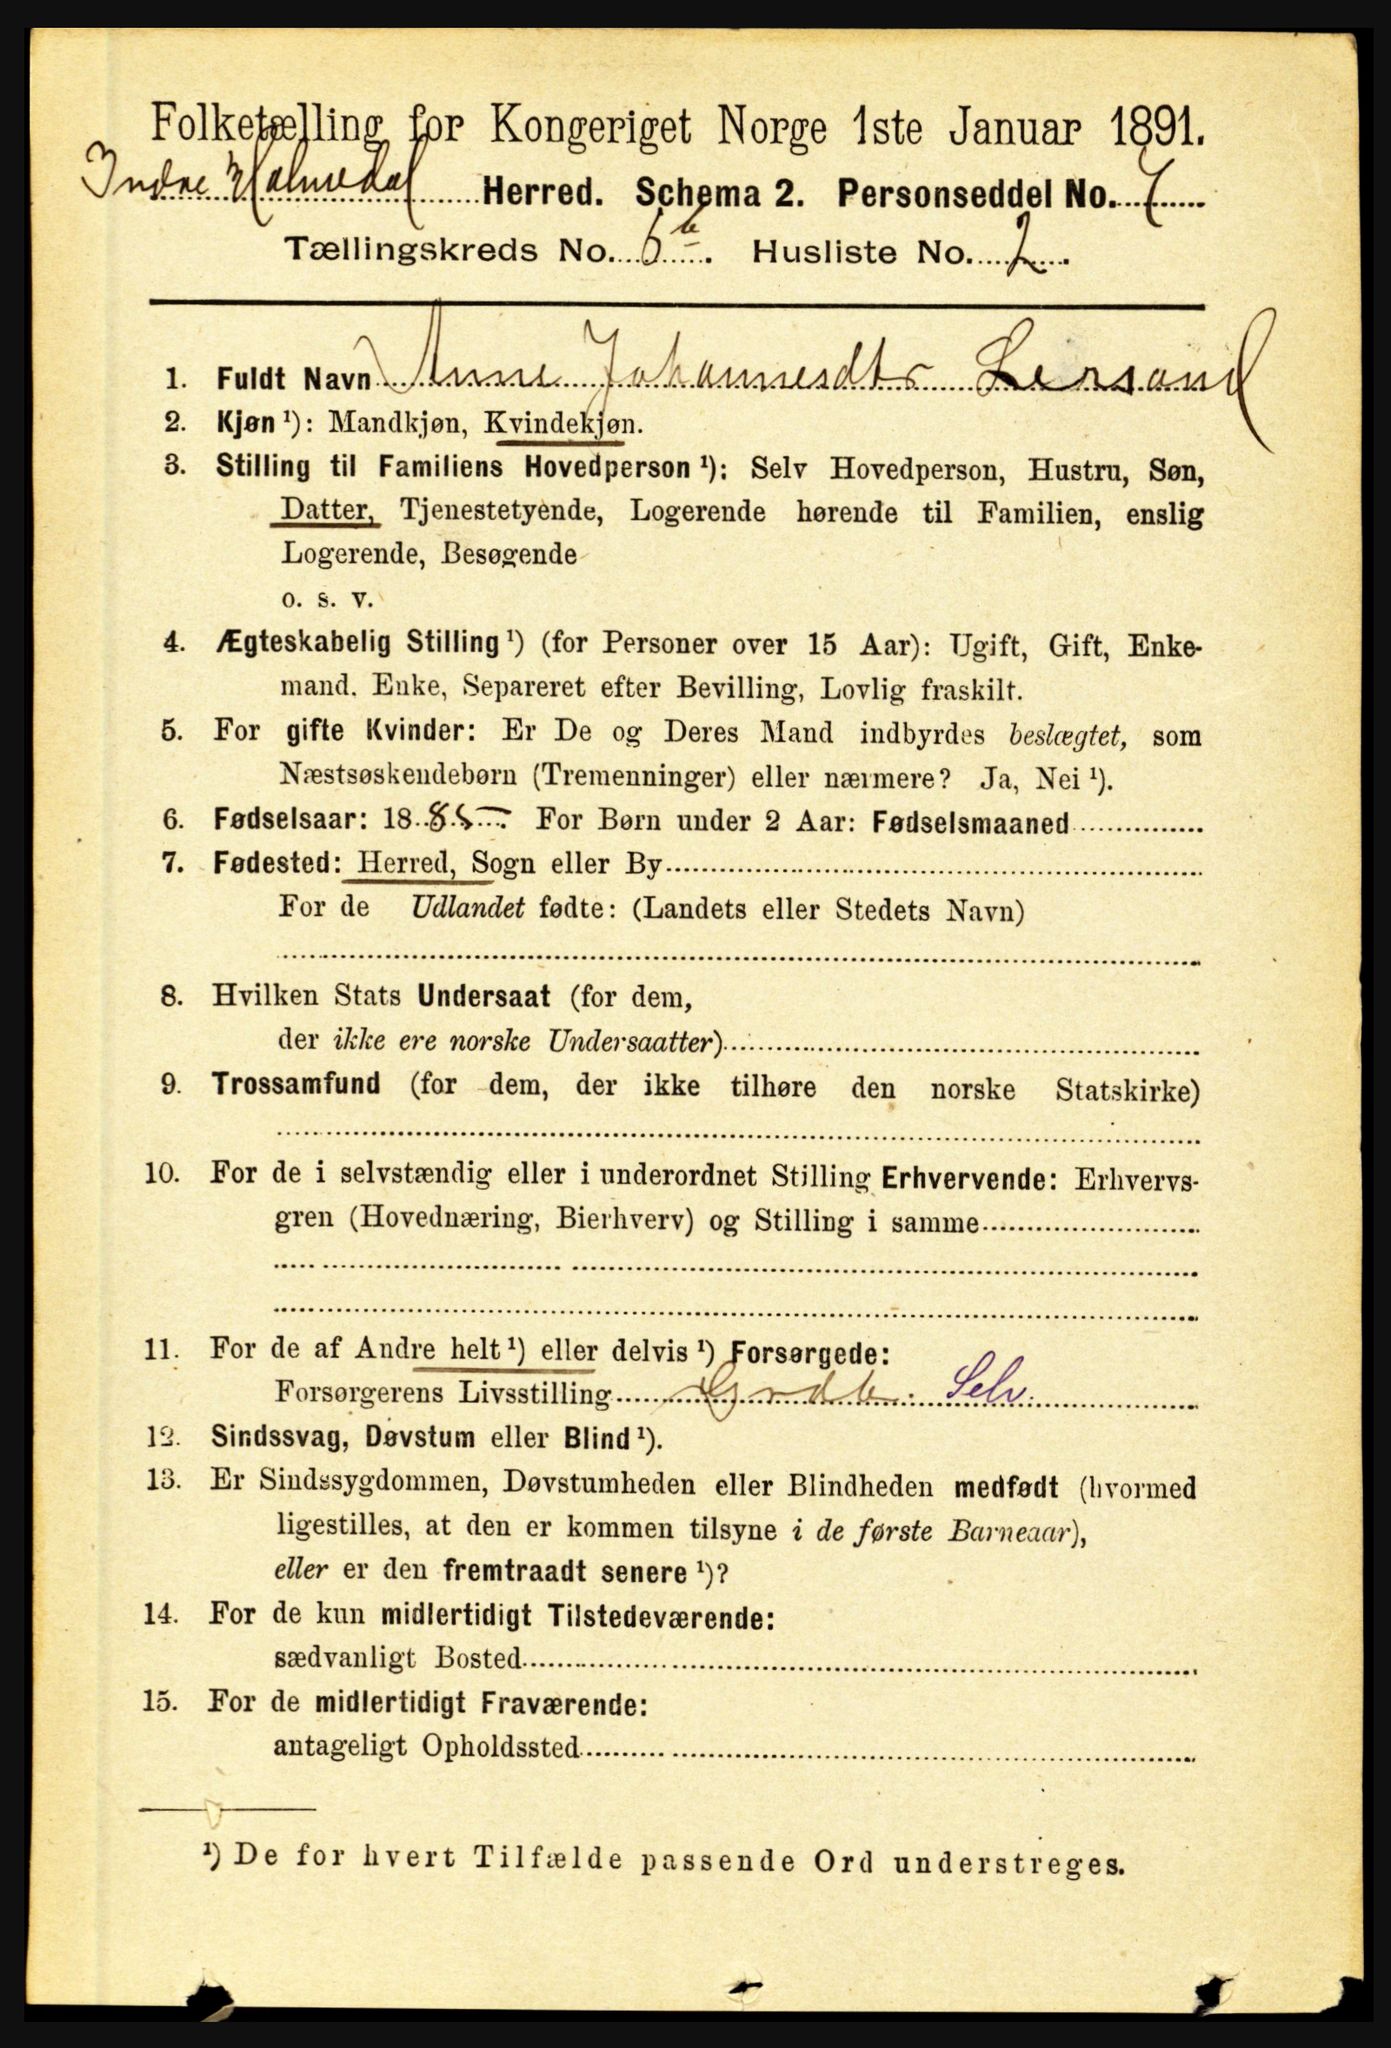 Folketælling for Kongeriget Norge 1ste Januar 1891.
Indre Holmedal Herred. Schema 2. Personseddel No. 7
Tællingskreds No. 5 b. Husliste No. 2.
1. Fuldt Navn Anne Johannesdtr Lersund
2. Kjøn ¹): Mandkjøn, Kvindekjøn.
3. Stilling til Familiens Hovedperson ¹): Selv Hovedperson, Hustru, Søn,
Datter, Tjenestetyende, Logerende hørende til Familien, enslig
Logerende, Besøgende
o. s. v.
4. Ægteskabelig Stilling ¹) (for Personer over 15 Aar): Ugift, Gift, Enke-
mand, Enke, Separeret efter Bevilling, Lovlig fraskilt.
5. For gifte Kvinder: Er De og Deres Mand indbyrdes beslægtet, som
Næstsøskendebørn (Tremenninger) eller nærmere? Ja, Nei ¹).
6. Fødselsaar: 1885. For Børn under 2 Aar: Fødselsmaaned
7. Fødested: Herred, Sogn eller By
For de Udlandet fødte: (Landets eller Stedets Navn)
8. Hvilken Stats Undersaat (for dem,
der ikke ere norske Undersaatter)
9. Trossamfund (for dem, der ikke tilhøre den norske Statskirke)
10. For de i selvstændig eller i underordnet Stilling Erhvervende: Erhvervs-
gren (Hovednæring, Bierhverv) og Stilling i samme
11. For de af Andre helt ¹) eller delvis ¹) Forsørgede:
Forsørgerens Livsstilling Grdb. Selv.
12. Sindssvag, Døvstum eller Blind ¹).
13. Er Sindssygdommen, Døvstumheden eller Blindheden medfødt (hvormed
ligestilles, at den er kommen tilsyne i de første Barneaar),
eller er den fremtraadt senere ¹)?
14. For de kun midlertidigt Tilstedeværende:
sædvanligt Bosted
15. For de midlertidigt Fraværende:
antageligt Opholdssted
¹) De for hvert Tilfælde passende Ord understreges.